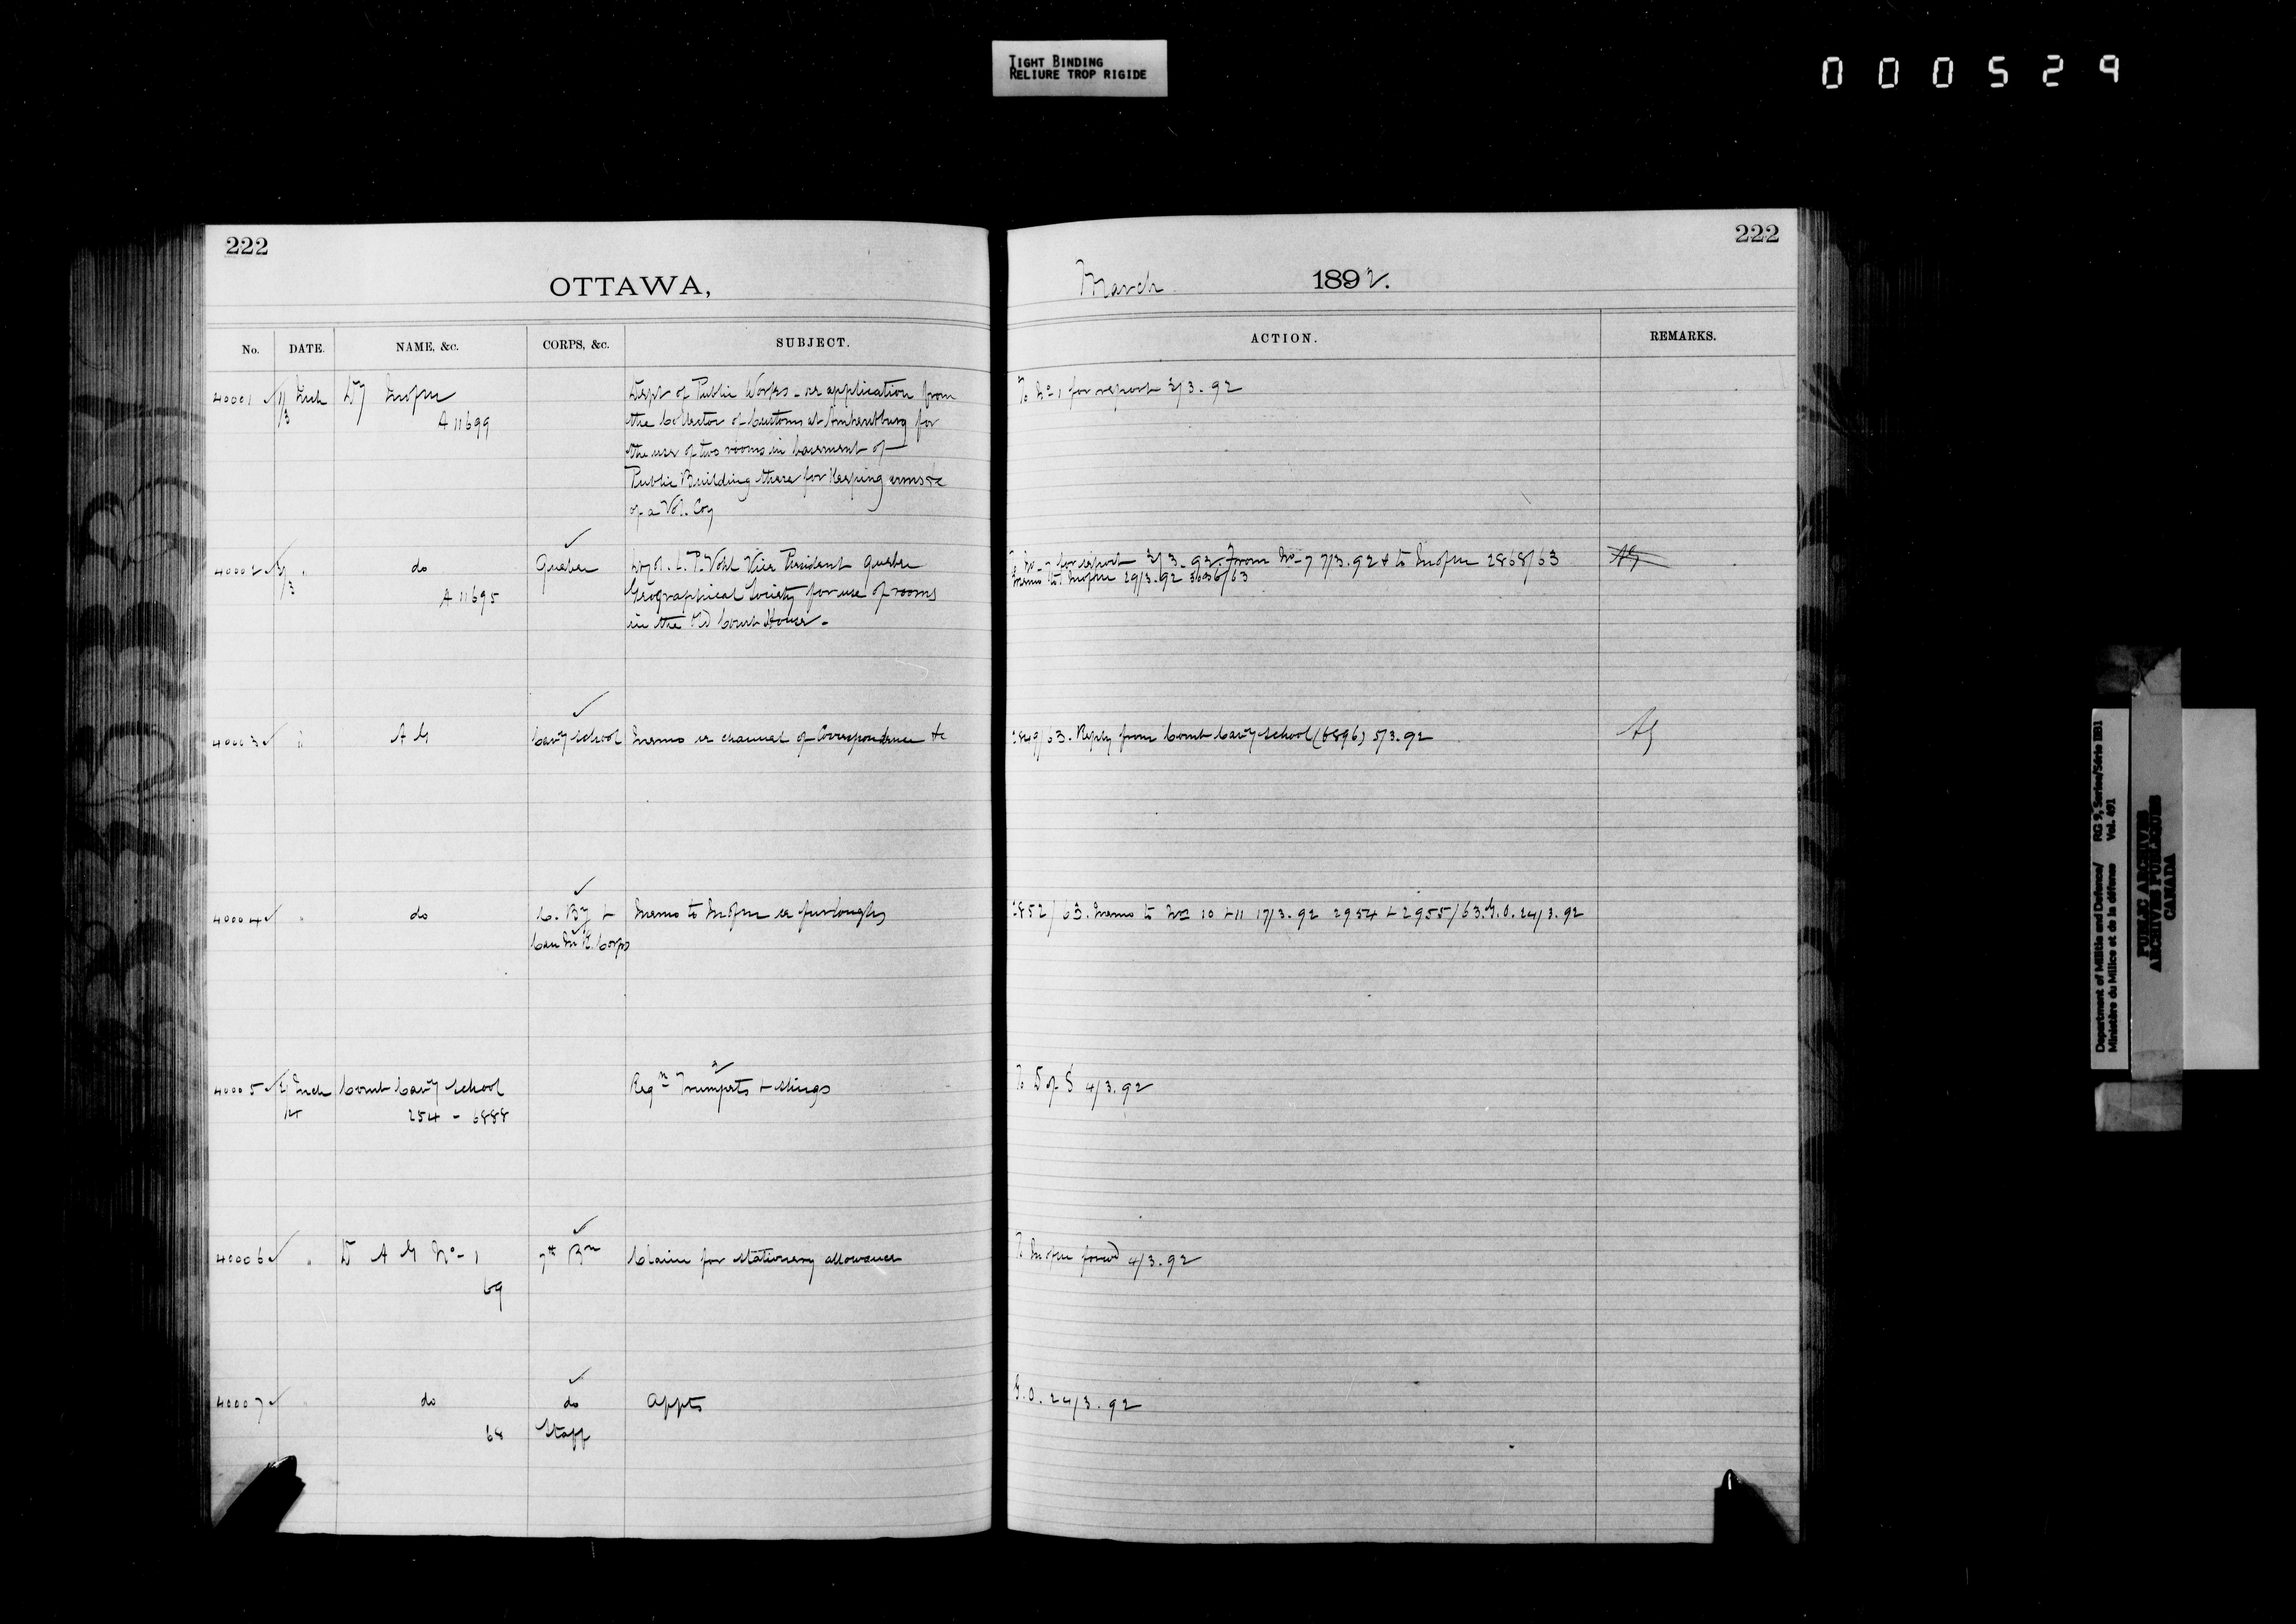 TIGHT BINDING
RELIURE TROP RIGIDE
000529
222
OTTAWA,
No. DATE. NAME, &c. CORPS, &c. SUBJECT.
40001 Dept of Public Works - re application from
A 11699 the Collector of Customs at Amherstburg for
the use of two rooms in basement of
Public Building there for keeping arms &c
of a Vol. Coy
40002 do Quebec Vice President Quebec
A 11695 Geographical Society for use of rooms
in the Old Court House.
40003 A G Cavy School Memo re channel of Correspondence &c
40004 do C. By + Memo to re furloughs
Corps
40005 Comt Cavy School Reqn Trumpets + slings
254 - 6888
40006 D A G No - 1 7th Bn Claim for stationery allowance
69
40007 do do Appts
68 Staff
222
March 1892.
ACTION. REMARKS.
To No 1 for report 3/3.92
for report 3/3.92. From No - 7 7/3.92 & to 2868/63
Memo to 29/3.92 3036/63
Reply from Comt Cavy School (6896) 5/3.92 AG
Memo to Nos 10 + 11 17/3.92 2954 + 2955/63. G.O. 24/3.92
To D of S 4/3.92
To forwd 4/3.92
G.O. 24/3.92
Department of Militia and Defence/ RG 9, Series/Série IIB1
Ministère du Milice et de la défense Vol. 491
PUBLIC ARCHIVES
ARCHIVES PUBLIQUES
CANADA